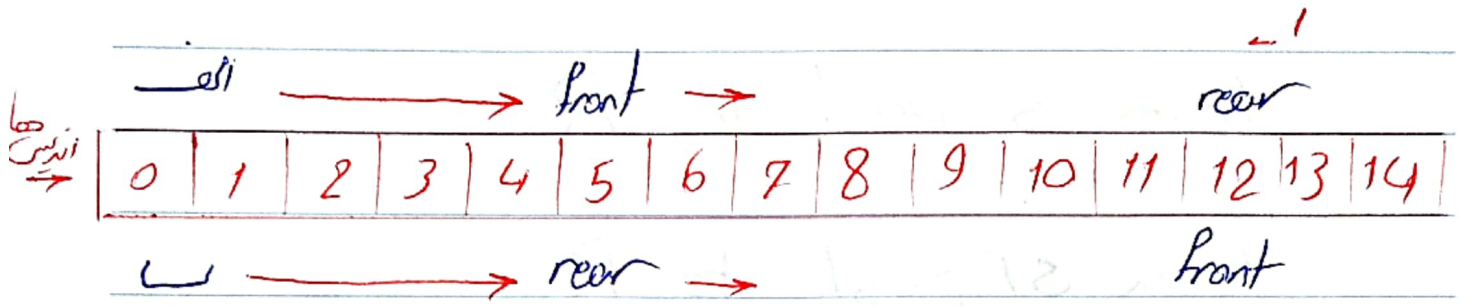 1
الف front rear
اندیس ها
0 1 2 3 4 5 6 7 8 9 10 11 12 13 14
ب rear front